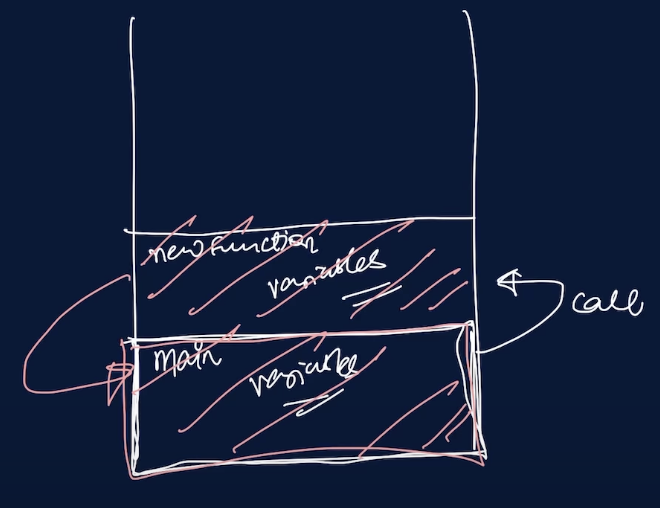 new function
variables
call
main
variables